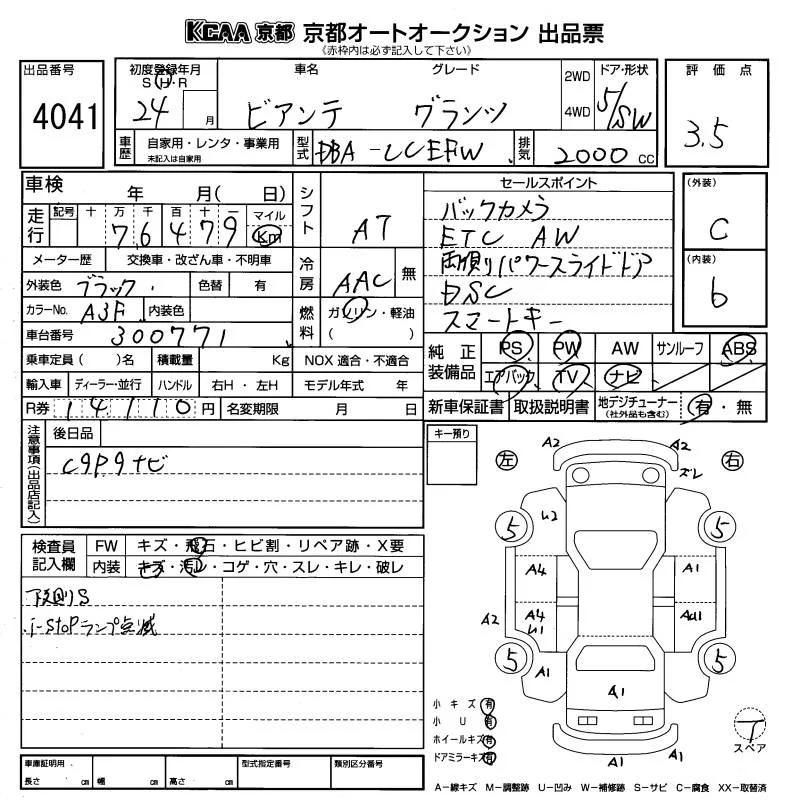 KCAA 京都 京都オートオークション 出品票
《赤枠内は必ず記入して下さい》
出品番号
4041
初度登録年月
S・H・R
24 月
車名 グレード
ビアンテ グランツ
2WD
4WD
ドア・形状
5/SW
評価点
3.5
車歴
自家用・レンタ・事業用
未記入は自家用
型式
DBA-CCEFW
排気
2000 CC
車検 年 月( 日)
走行
記号 十 万 千 百 十 一 マイル
7 6 4 7 9 Km
メーター歴 交換車・改ざん車・不明車
外装色 ブラック 色替 有
カラーNo. A3F 内装色
車台番号 300771
乗車定員( )名 積載量 Kg
輸入車 ディーラー・並行 ハンドル 右H・左H
R券 14110 円 名変期限 月 日
シフト AT
冷房 AAC 無
燃料 ガソリン・軽油
( )
NOX 適合・不適合
モデル年式 年
セールスポイント
バックカメラ
ETC AW
両側パワースライドドア
DSC
スマートキー
(外装)
C
(内装)
b
純正装備品
PS PW AW サンルーフ ABS
エアバック TV ナビ
新車保証書 取扱説明書 地デジチューナー
(社外品も含む)
有・無
注意事項(出品店記入)
後日品
C9P9ナビ
キー預り
検査員記入欄
FW キズ・飛石・ヒビ割・リペア跡・X要
内装 キズ・汚レ・コゲ・穴・スレ・キレ・破レ
下廻りS
i-stopランプ点滅
左 右
A2 A2
ズレ
U2
5 5
A4 A1
A2 A4 U1 AU1
5 5
A1
A1
A1 A1
小キズ 有
小U 有
ホイールキズ 有
ドアミラーキズ 有
T
スペア
車庫証明用
長さ cm 幅 cm 高さ cm
型式指定番号 類別区分番号
A-線キズ M-調整跡 U-凹み W-補修跡 S-サビ C-腐食 XX-取替済